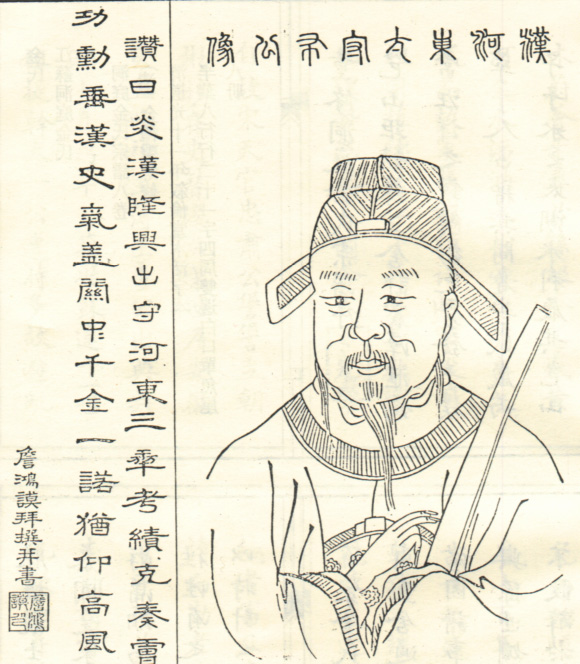 漢河東太守布公像
讚曰炎漢隆興出守河東三年考績克奏膚
功勳垂漢史氣蓋關中千金一諾猶仰高風
詹鴻謨拜撰并書